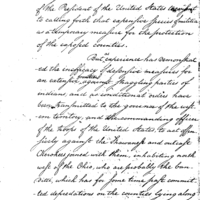 of the President of the United States
to calling forth that expensive species of militia
as a temporary measure for the protection
of the exposed counties.
But experience has demonstrat
ed the inefficacy of defensive measures for
an extensive against straggling parties of
indians, and as conditional orders have
been transmitted to the governor of the
ern territory, and the commanding officer
of the troops of the United States, to act offen
sively against the Shawanese and outcast
Cherokees joined with them, inhabiting north
west of the Ohio, who are probably the ban
ditti, which has for some time past commit
ted depredations on the counties lying along